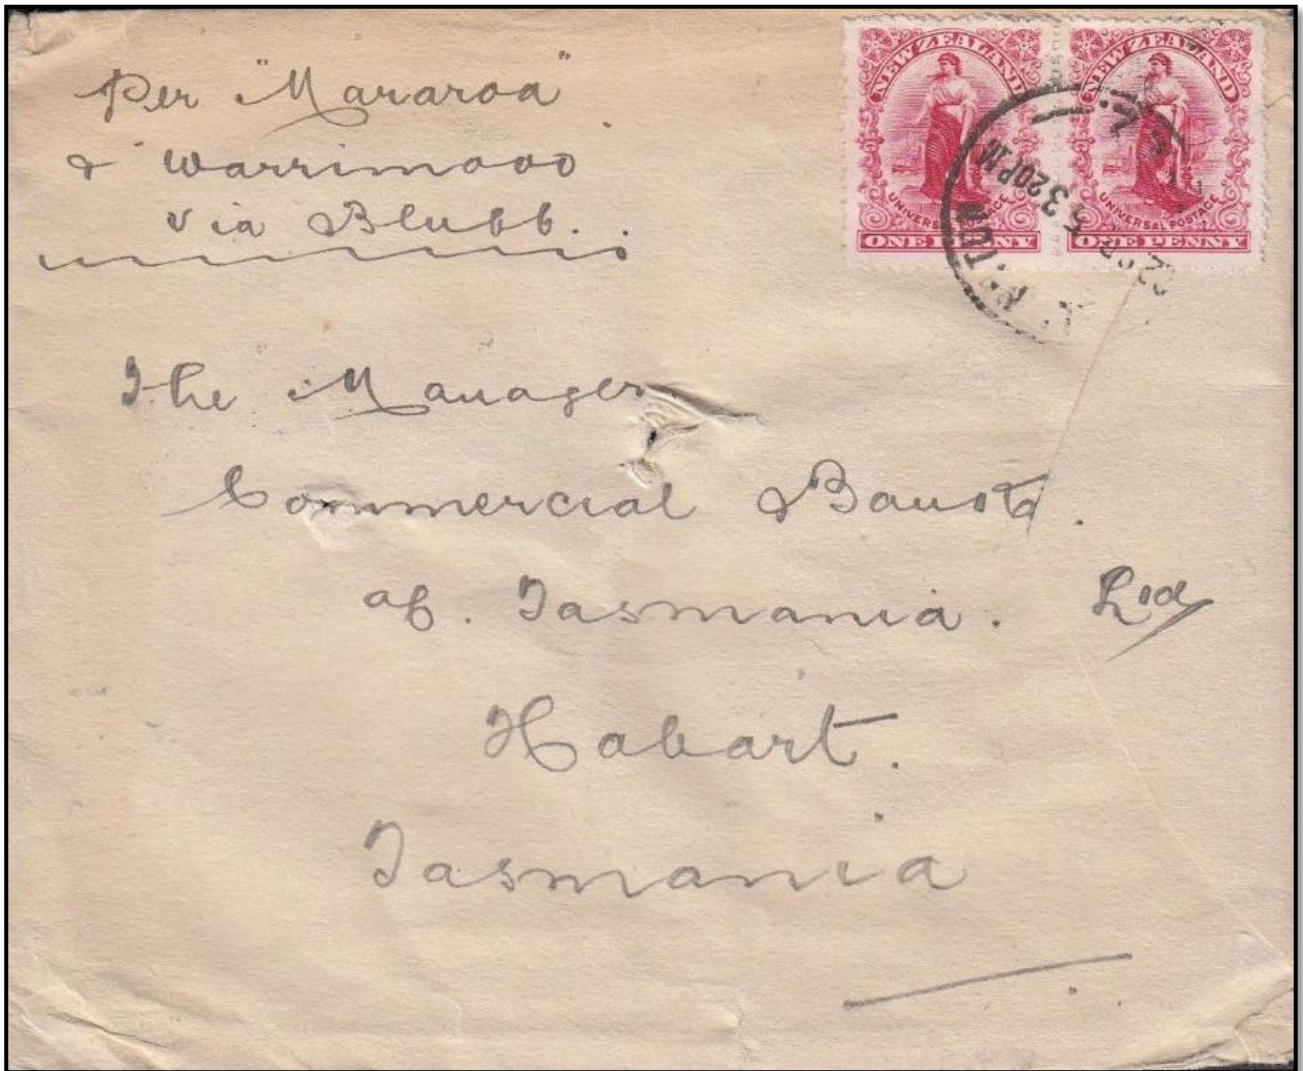 Per "Mararoa"
& "Warrimooo"
via Bluff.
NEW ZEALAND
UNIVERSAL POSTAGE
ONE PENNY
NEW ZEALAND
UNIVERSAL POSTAGE
ONE PENNY
5 320PM
The Manager.
Commercial Bank
of. Tasmania. Ltd
Hobart.
Tasmania